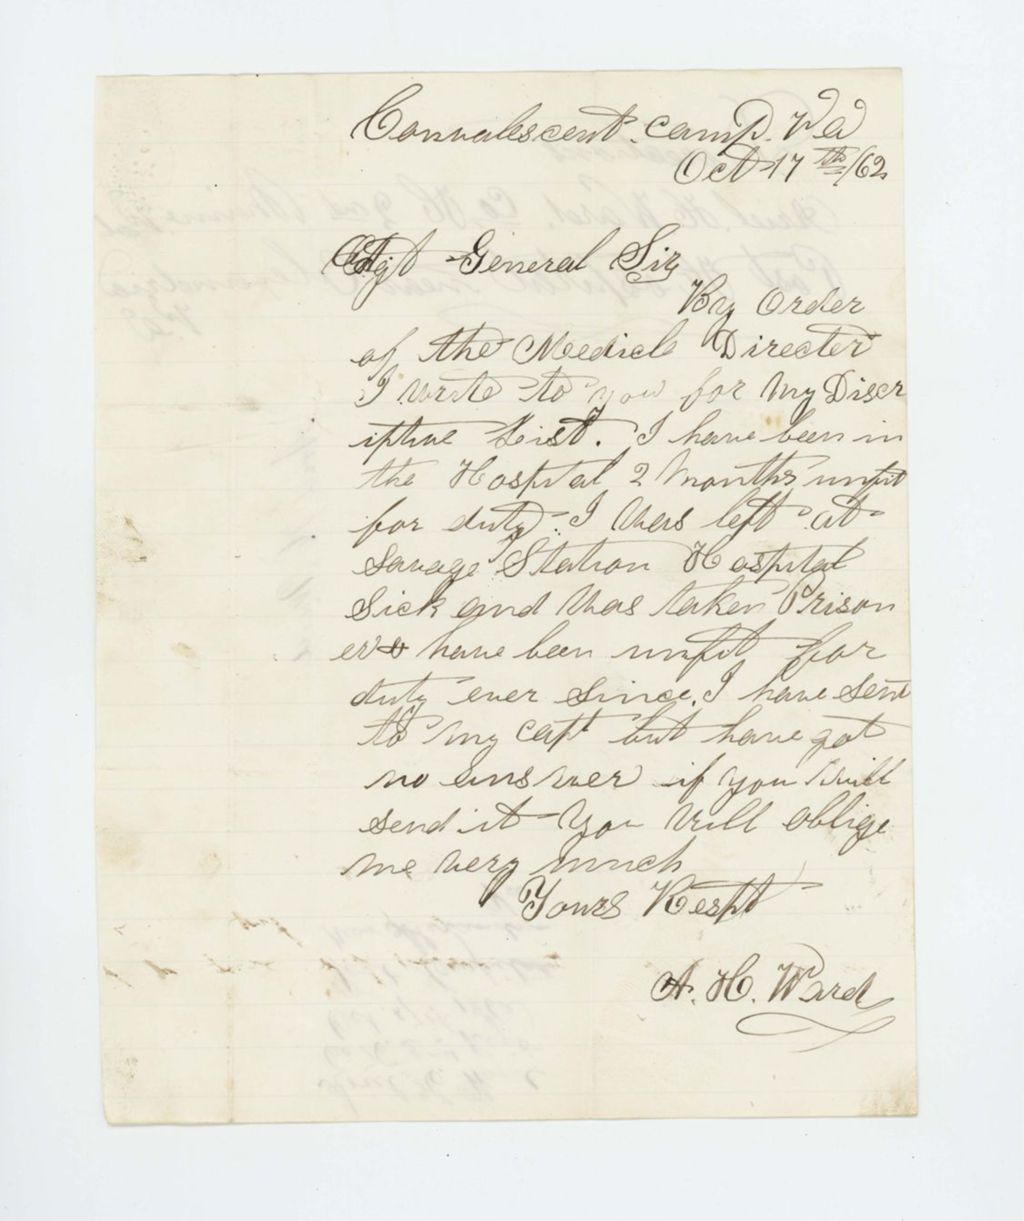 Convalescent. camp. Va
Oct 17th/62
Adjt General Sir
By Order
of the Medicle Directer
I write to you for My Discr
iptive List. I have been in
the Hospital 2 Months unfit
for duty. I Was left at
Savage Station Hospital
Sick and Was taken Prison
er & have been unfit for
duty ever Since. I have sent
to my Capt but have got
no answer if you will
send it You Will oblige
me very much
Yours Respt
A. H. Ward